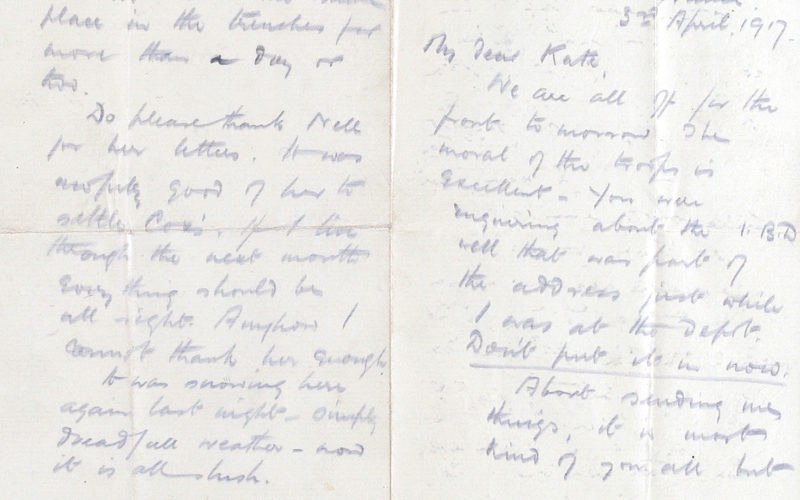 3rd April, 1917.
My Dear Kate,
We are all off for the
front tomorrow. The
moral of the troops is
Excellent - You were
enquiring about the I.B.D
well that was part of
the address just while
I was at the Depot.
Don't put it in now.
About sending me
things, it is most
kind of you all but
place in the trenches for
more than a day or
two.
Do please thank Nell
for her letters. It was
awfully good of her to
settle Cox's. If I live
through the next month
Everything should be
all right. Anyhow I
cannot thank her enough.
It was snowing here
again last night - simply
dreadfull weather - now
it is all slush.